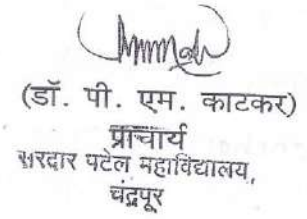 (डॉ. पी. एम. काटकर)
प्राचार्य
सरदार पटेल महाविद्यालय,
चंद्रपूर